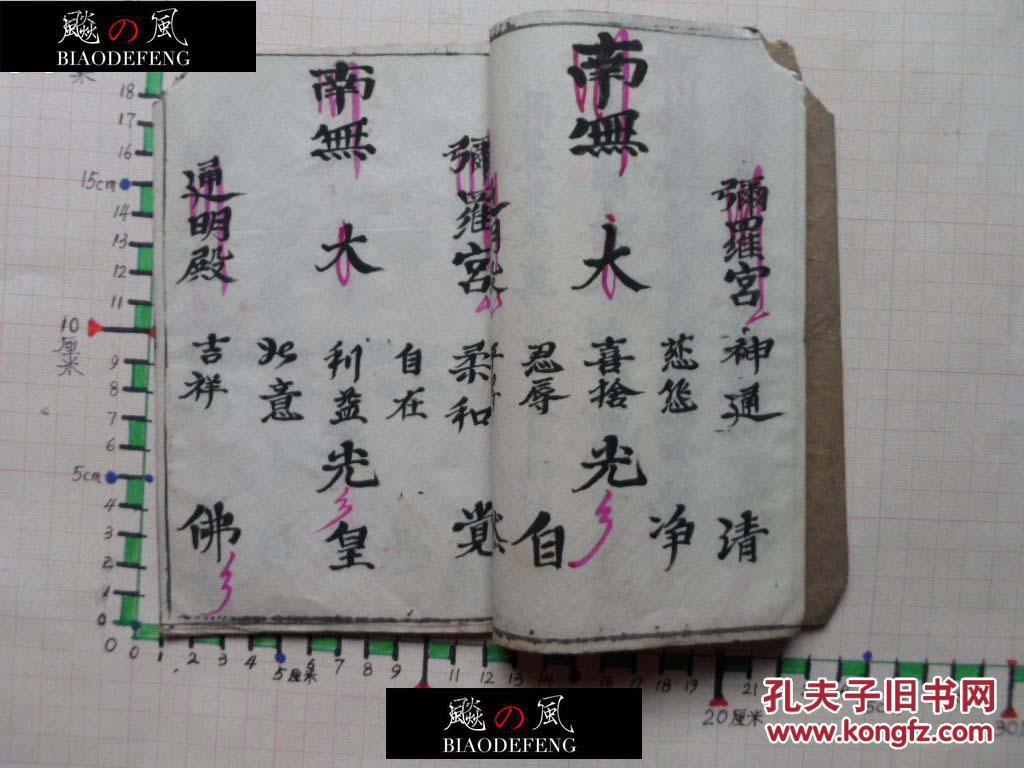 飈の風
BIAODEFENG
彌羅宮
神通
清
慈悲
净
南無
大
喜捨
光
忍辱
自
彌羅宮
柔和
覚
自在
南無
大
利益
光
皇
如意
通明殿
吉祥
佛
18
17
16
15cm
14
13
12
11
10
厘
米
9
8
7
6
5cm
4
3
2
1
0
0 1 2 3 4 5厘米 6 7 8 9 11 12 13 14 16 17 18 19 20厘米 21
飈の風
BIAODEFENG
孔夫子旧书网
www.kongfz.com